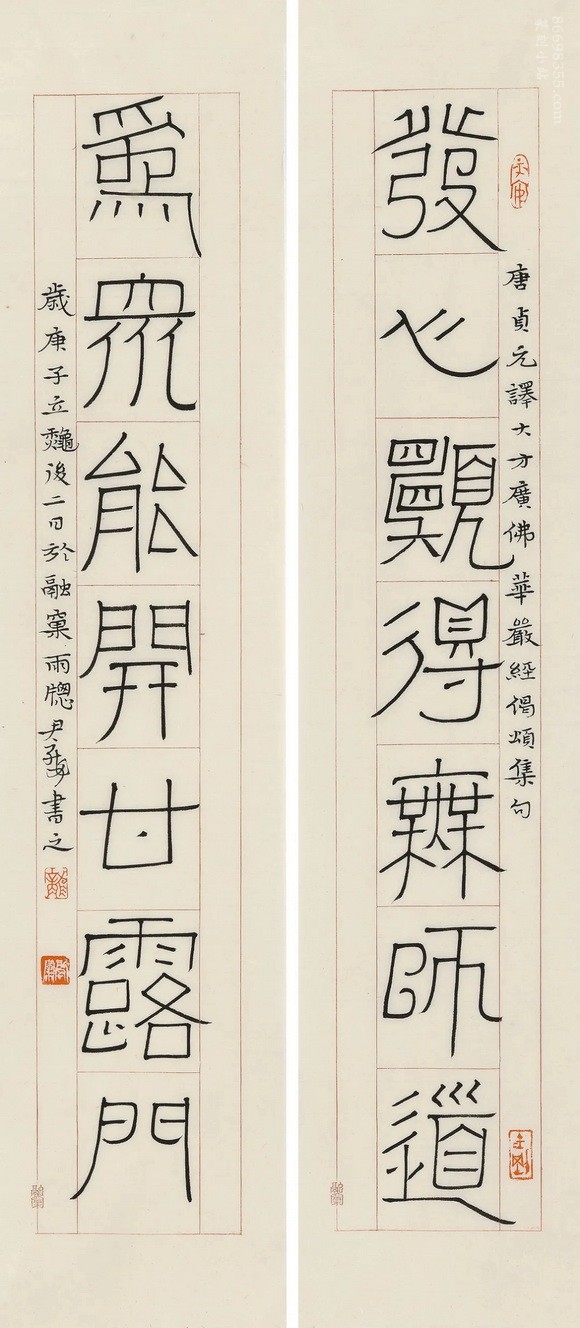 發心願得無師道
唐貞元譯大方廣佛華嚴經偈頌集句
爲眾能開甘露門
歲庚子立龝後二日於融窠雨牕尹書之